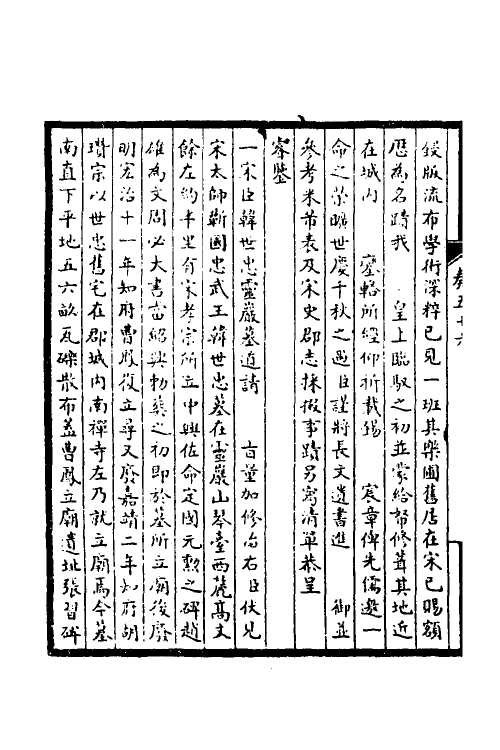 鋟版流布學術深粹已見一班其樂圃舊居在宋已賜額
歷為名蹟我　皇上臨馭之初並蒙給帑修葺其地近
在城內　鑾輅所經仰祈載錫　宸章俾先儒邀一
命之榮曠世慶千秋之遇臣謹將長文遺書進　御並
參考米芾表及宋史郡志採倣事蹟另寫清單恭呈
睿鑒
一宋臣韓世忠靈巖墓道請　旨量加修治右臣伏見
宋太師蘄國忠武王韓世忠墓在靈巖山琴臺西麓高丈
餘左約半里有宋孝宗所立中興佐命定國元勳之碑趙
雄為文周必大書當紹興勅葬之初即於墓所立廟後廢
明宏治十一年知府曹鳳復立尋又廢嘉靖二年知府胡
瓚宗以世忠舊宅在郡城內南禪寺左乃就立廟焉今墓
南直下平地五六畝瓦礫散布蓋曹鳳立廟遺址張習碑
卷五十六